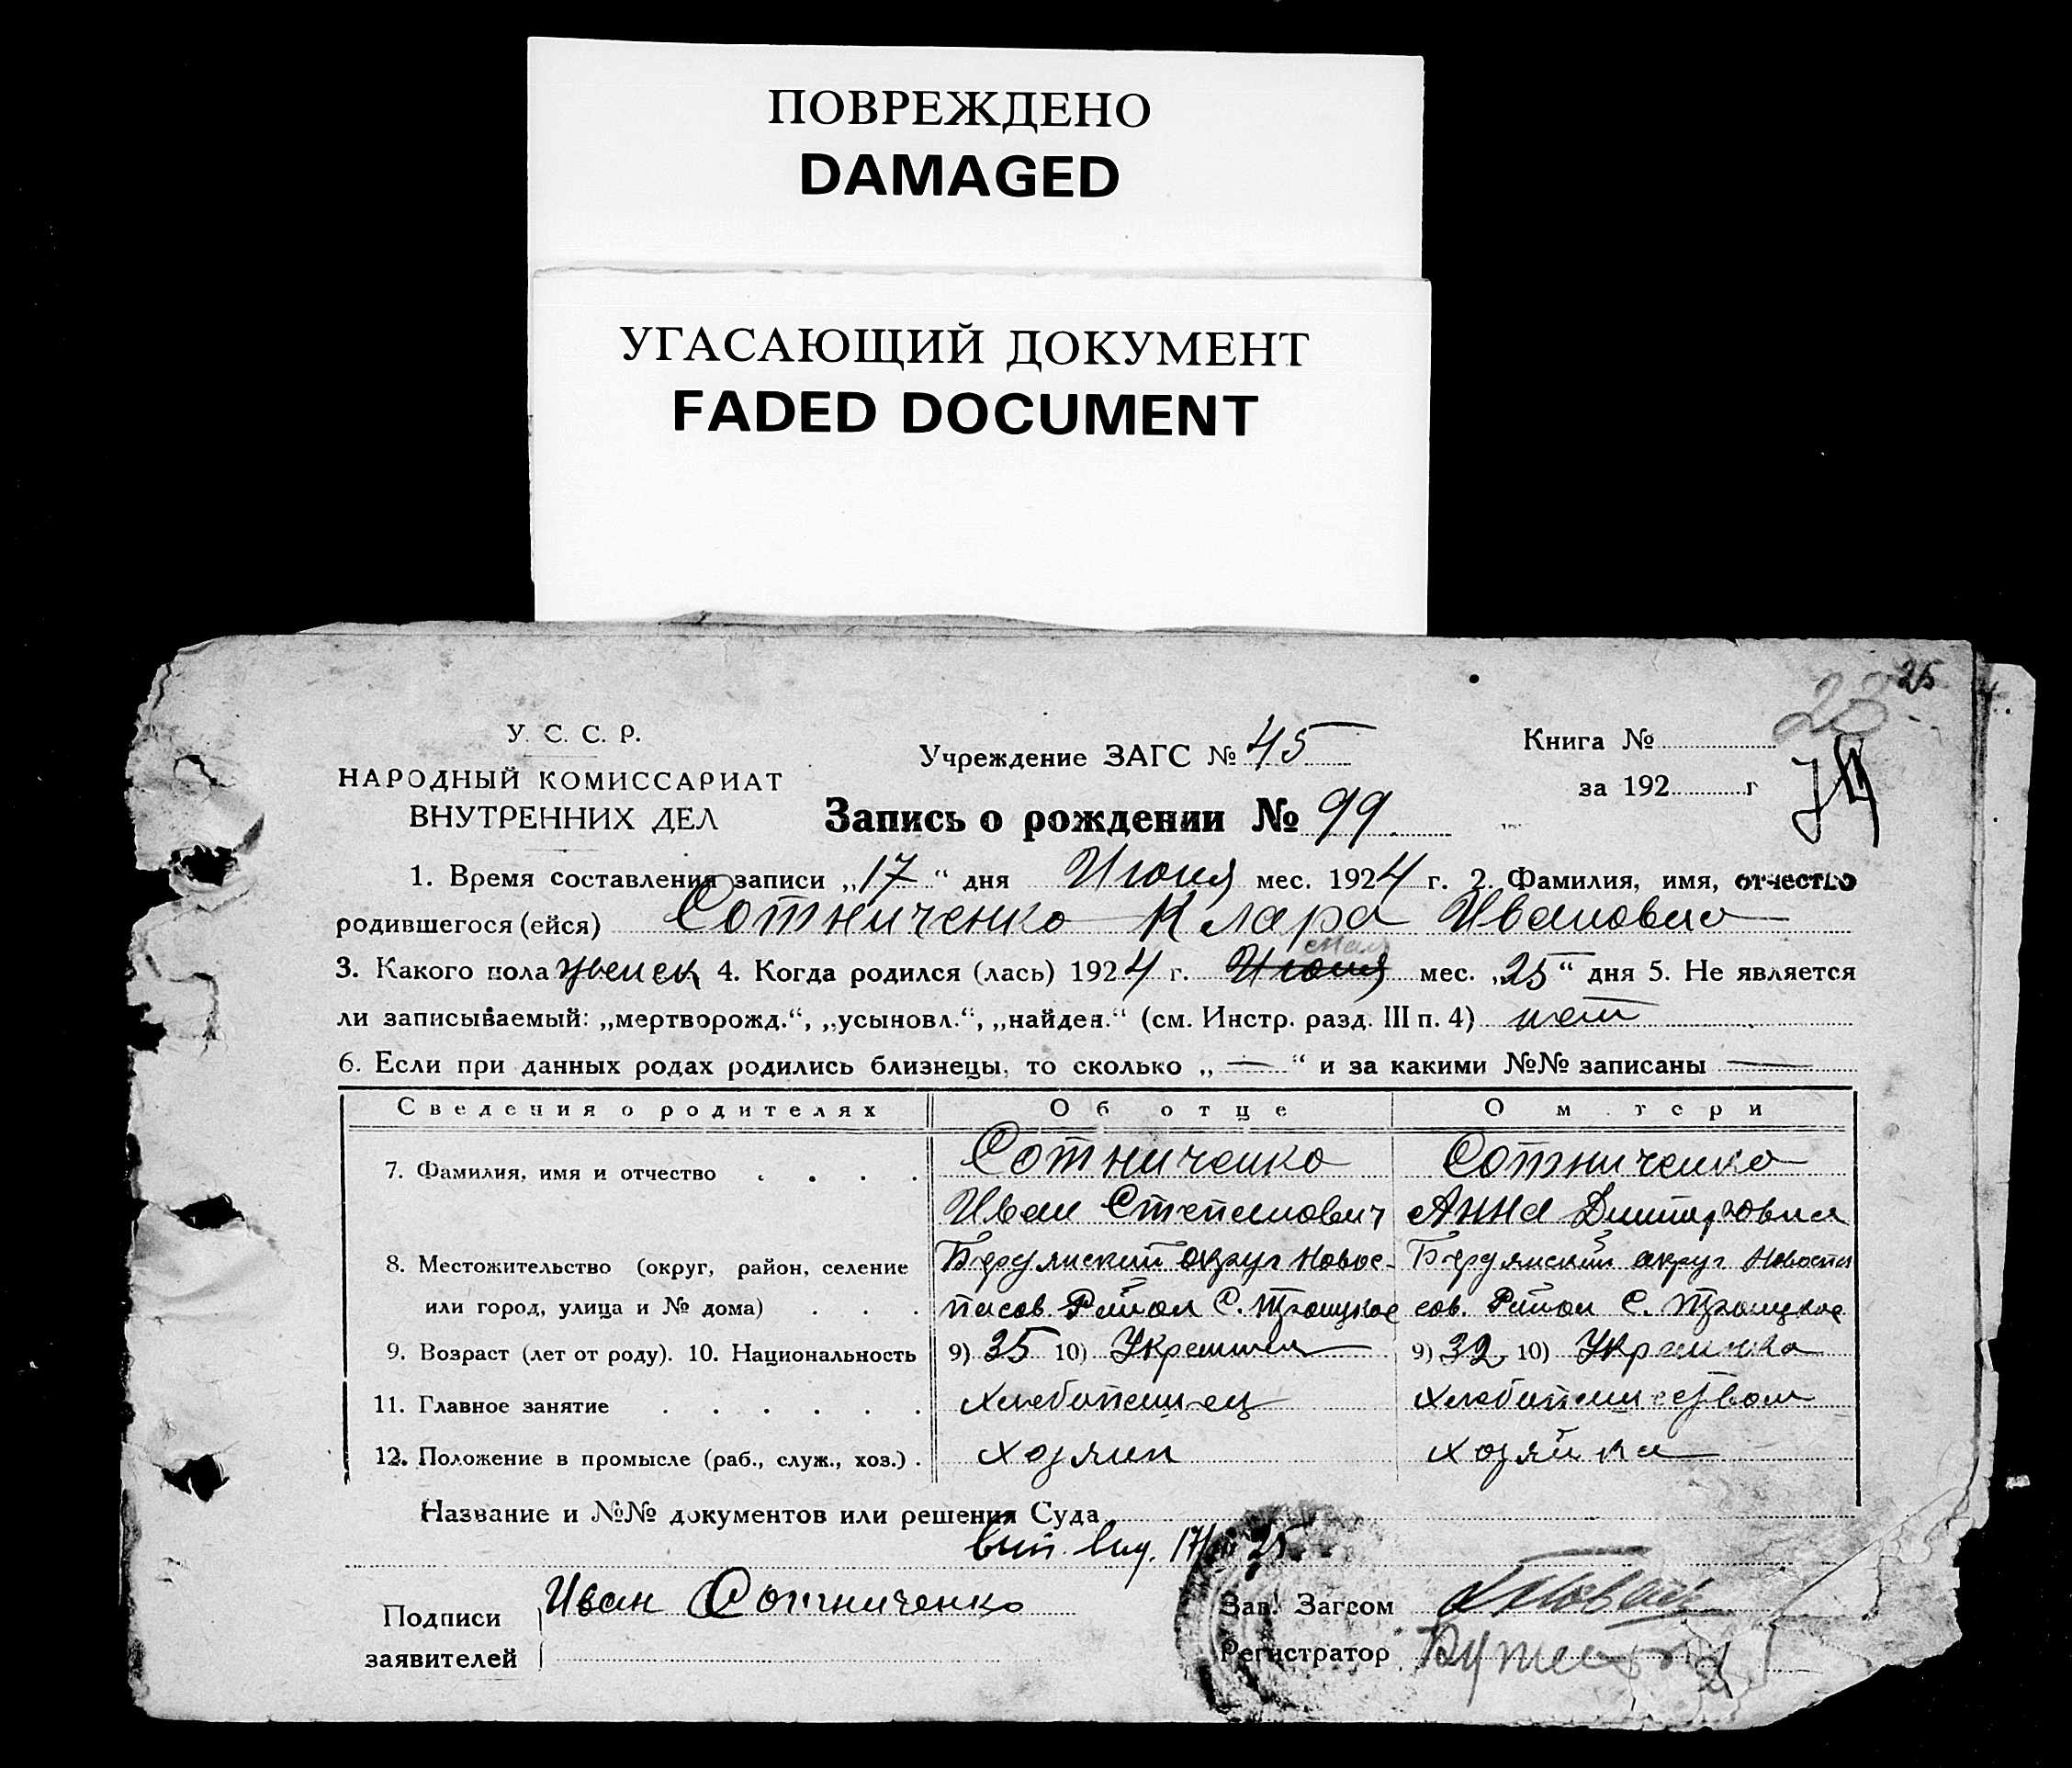 ПОВРЕЖДЕНО
DAMAGED
УГАСАЮЩИЙ ДОКУМЕНТ
FADED DOCUMENT
25
28
У. С. С. Р.
НАРОДНЫЙ КОМИССАРИАТ
ВНУТРЕННИХ ДЕЛ
Учреждение ЗАГС № 45
Книга №
за 192 г
74
Запись о рождении № 99.
1. Время составления записи „17“ дня Июня мес. 1924 г. 2. Фамилия, имя, отчество
родившегося (ейся) Сотниченко Клара Ивановна
мая
3. Какого пола женск 4. Когда родился (лась) 1924 г. Июня мес. „25“ дня 5. Не является
ли записываемый: „мертворожд.“, „усыновл.“, „найден.“ (см. Инстр. разд. III п. 4) нет
6. Если при данных родах родились близнецы, то сколько „—“ и за какими №№ записаны —
Сведения о родителях Об отце О м тери
7. Фамилия, имя и отчество . . . . Сотниченко Сотниченко
Иван Степанович Анна Дмитровна
8. Местожительство (округ, район, селение Бердянский округ Новос- Бердянский округ Новоспа
или город, улица и № дома) . . . пасов. Район С. Троицкое сов. Район С. Троицкое
9. Возраст (лет от роду). 10. Национальность 9) 35 10) Украинец 9) 32 10) Украинка
11. Главное занятие . . . . . . хлебопашец хлебопашеством
12. Положение в промысле (раб., служ., хоз.) . хозяин хозяйка
Название и №№ документов или решения Суда
вып. выд. 17/ 25.
Подписи Иван Сотниченко Зав. Загсом
заявителей Регистратор